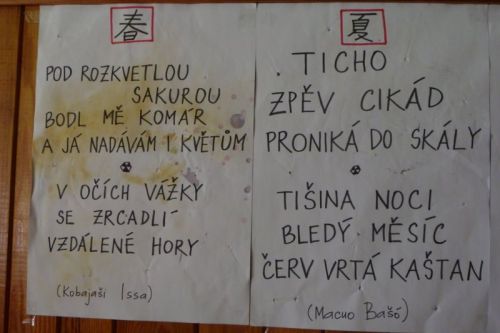 春
POD ROZKVETLOU
SAKUROU
BODL MĚ KOMÁR
A JÁ NADÁVÁM I KVĚTŮM
V OČÍCH VÁŽKY
SE ZRCADLÍ
VZDÁLENÉ HORY
(Kobajaši Issa)
夏
TICHO
ZPĚV CIKÁD
PRONIKÁ DO SKÁLY
TIŠINA NOCI
BLEDÝ MĚSÍC
ČERV VRTÁ KAŠTAN
(Macuo Bašó)